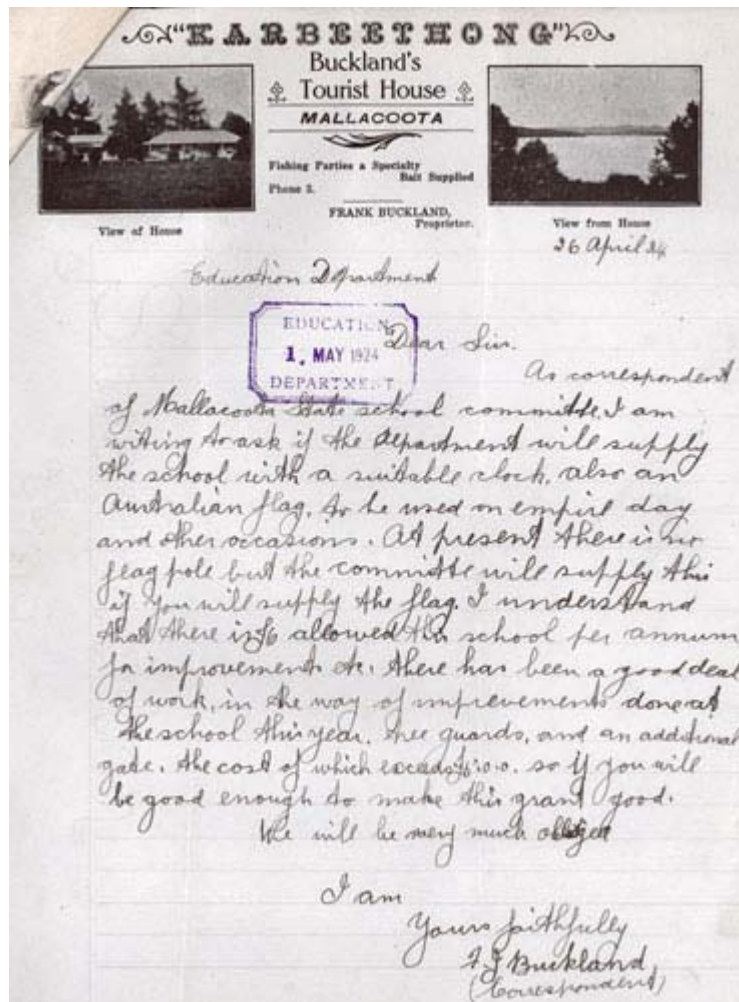 "KARBEETHONG"
Buckland's
Tourist House
MALLACOOTA
Fishing Parties a Specialty
Bait Supplied
Phone 2.
FRANK BUCKLAND,
Proprietor.
View of House
View from House
26 April 24
Education Department
EDUCATION
1. MAY 1924
DEPARTMENT
Dear Sir.
As correspondent
of Mallacoota State school committe. I am
writing to ask if the department will supply
the school with a suitable clock, also an
Australian flag, to be used on empire day
and other occasions. At present there is no
flag pole but the committe will supply this
if you will supply the flag. I understand
that there is £6 allowed this school per annum
for improvements etc. there has been a good deal
of work, in the way of improvements done at
the school this year, tree guards, and an additional
gate. the cost of which exceeds £6.0.0. so if you will
be good enough to make this grant good.
We will be very much obliged
I am
Yours faithfully
F J Buckland
(Correspondent)